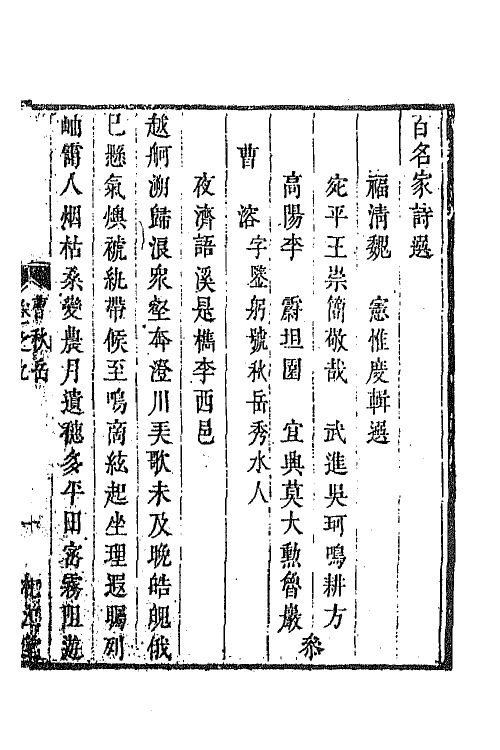 百名家詩選
福清魏　憲惟度輯選
宛平王崇簡敬哉　武進吳珂鳴耕方
高陽李　霨坦園　宜興莫大勳魯巖
參
曹　溶字鑒躬號秋岳秀水人
夜濟語溪是檇李西邑
越舸溯歸浪衆壑奔澄川美歌未及晚皓魄俄
已懸氣燠褫紈帶候至鳴商絃起坐理遐矚列
岫窅人烟枯桑變農月遺穗多平田窅霧阻遊
曹秋岳